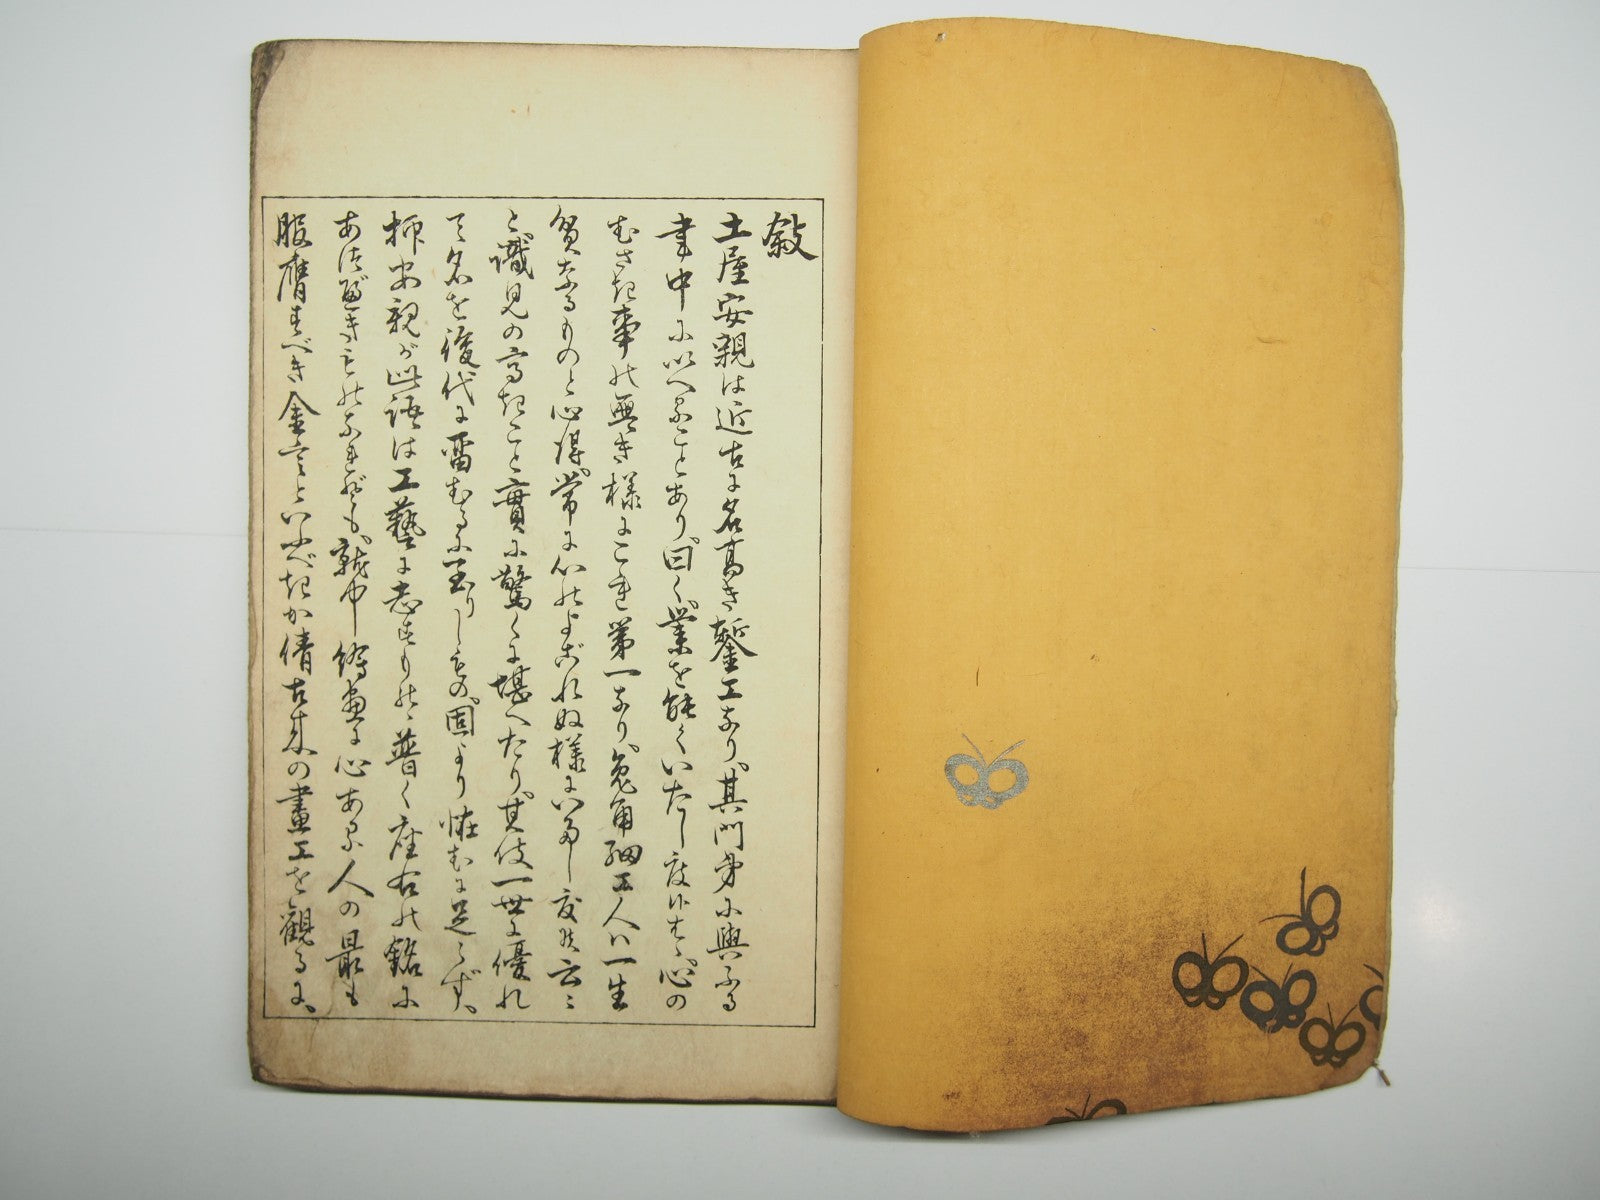 敍
土屋安親は近古に名高き鏨工なり、其門弟に與ふる
書中にいへることあり、曰く、業を能くいたし度候はゞ、心の
むさき事の無き様にこれ第一なり、兎角細工人は一生
貧なるものと心得、常に心のよごれぬ様にいたし度候云々
と、識見の高きこと實に驚くに堪へたり、其伎一世に優れ
て名を後代に留むるに至りしもの、固より恠むに足らず、
抑安親が此語は工藝に志すもの、普く座右の銘に
あつべきものなれども、就中繪畫に心ある人の最も
服膺すべき金言といふべきか倩古来の畫工を観るに、